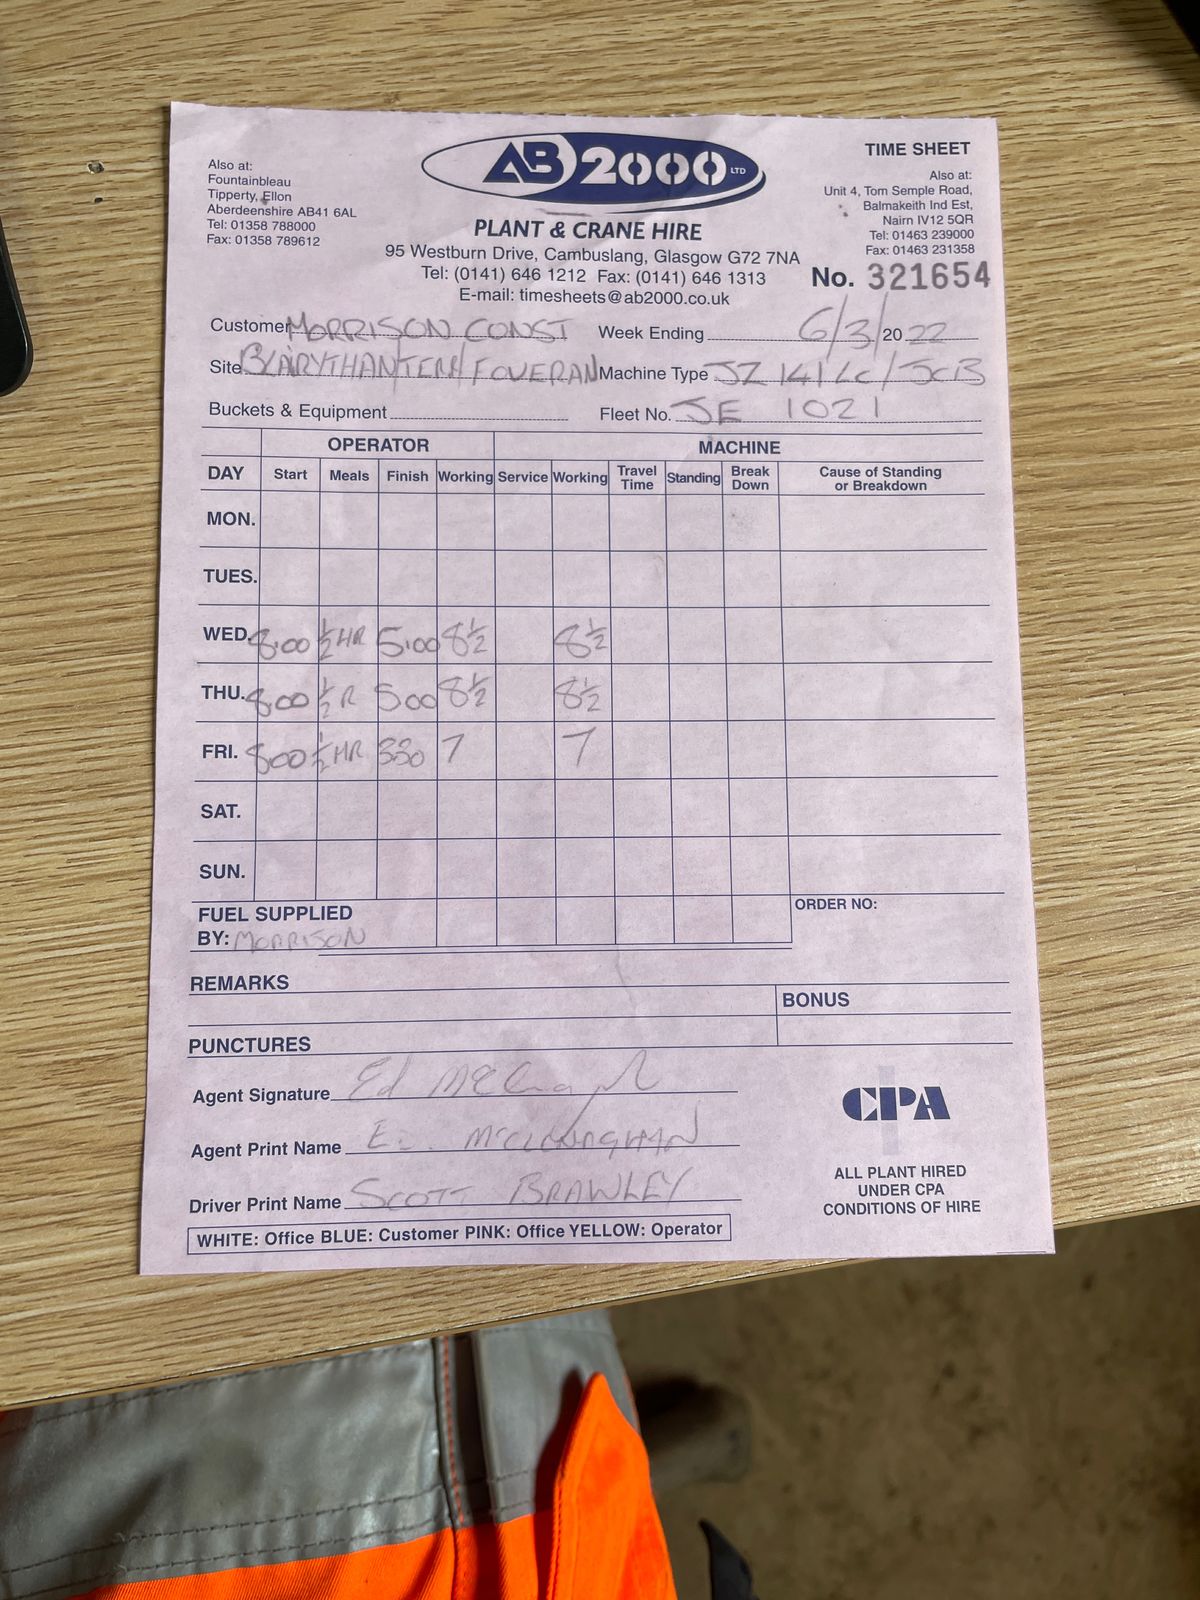 TIME SHEET
Also at:
Fountainbleau
Tipperty, Ellon
Aberdeenshire AB41 6AL
Tel: 01358 788000
Fax: 01358 789612
AB 2000 LTD
PLANT & CRANE HIRE
95 Westburn Drive, Cambuslang, Glasgow G72 7NA
Tel: (0141) 646 1212 Fax: (0141) 646 1313
E-mail: timesheets@ab2000.co.uk
Also at:
Unit 4, Tom Semple Road,
Balmakeith Ind Est,
Nairn IV12 5QR
Tel: 01463 239000
Fax: 01463 231358
No. 321654
Customer MORRISON CONST Week Ending 6/3/2022
Site FOVERAN Machine Type JZ 141 LC/JCB
Buckets & Equipment Fleet No. JE 1021
OPERATOR MACHINE
DAY Start Meals Finish Working Service Working Travel Time Standing Break Down Cause of Standing or Breakdown
MON.
TUES.
WED. 8.00 ½ HR 5.00 8½ 8½
THU. 8.00 ½ R 500 8½ 8½
FRI. 800 ½ HR 330 7 7
SAT.
SUN.
FUEL SUPPLIED
BY: MORRISON
ORDER NO:
REMARKS
BONUS
PUNCTURES
Agent Signature Ed
Agent Print Name
Driver Print Name SCOTT BRAWLEY
CPA
ALL PLANT HIRED
UNDER CPA
CONDITIONS OF HIRE
WHITE: Office BLUE: Customer PINK: Office YELLOW: Operator